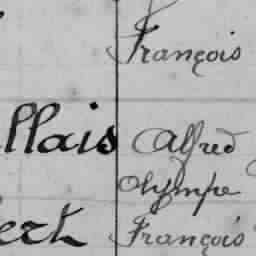 François
llais Alfred
Olympe
ert François